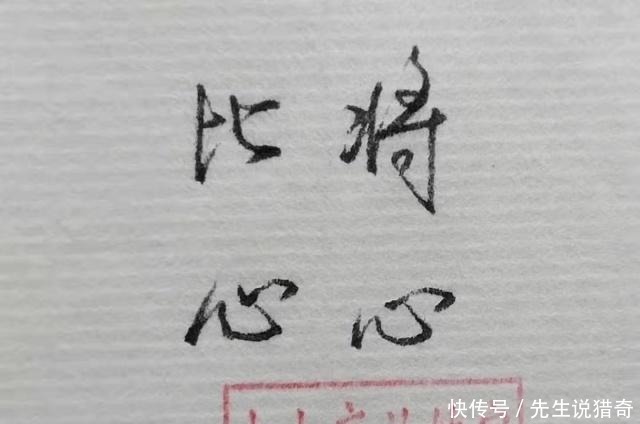 将心
比心
快传号／先生说猎奇